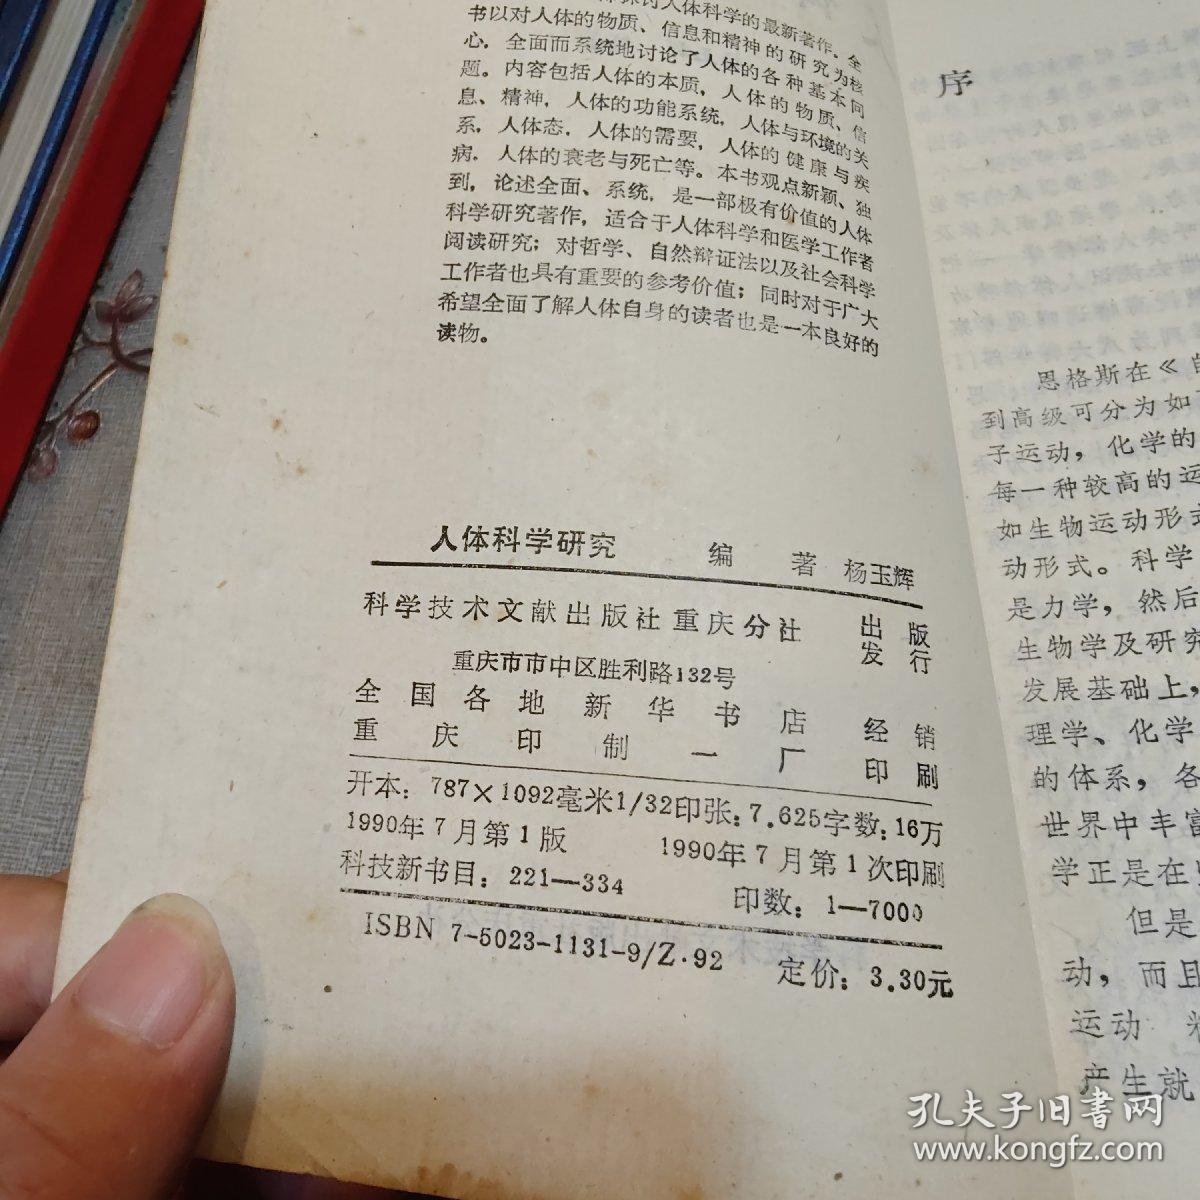 探讨人体科学的最新著作。全
书以对人体的物质、信息和精神的研究为核
心，全面而系统地讨论了人体的各种基本问
题。内容包括人体的本质，人体的物质、信
息、精神，人体的功能系统，人体与环境的关
系，人体态，人体的需要，人体的健康与疾
病，人体的衰老与死亡等。本书观点新颖、独
到，论述全面、系统，是一部极有价值的人体
科学研究著作，适合于人体科学和医学工作者
阅读研究；对哲学、自然辩证法以及社会科学
工作者也具有重要的参考价值；同时对于广大
希望全面了解人体自身的读者也是一本良好的
读物。
人体科学研究 编 著 杨玉辉
科学技术文献出版社重庆分社 出版发行
重庆市市中区胜利路132号
全国各地新华书店 经销
重庆印制一厂 印刷
开本：787×1092毫米1/32印张：7.625字数：16万
1990年7月第1版 1990年7月第1次印刷
科技新书目：221—334 印数：1—7000
ISBN 7-5023-1131-9/Z·92 定价：3.30元
序
恩格斯在《自
到高级可分为如
子运动，化学的
每一种较高的运
如生物运动形式
动形式。科学
是力学，然后
生物学及研究
发展基础上，
理学、化学
的体系，各
世界中丰富
学正是在
但是
动，而且
运动
产生就
孔夫子旧书网
www.kongfz.com